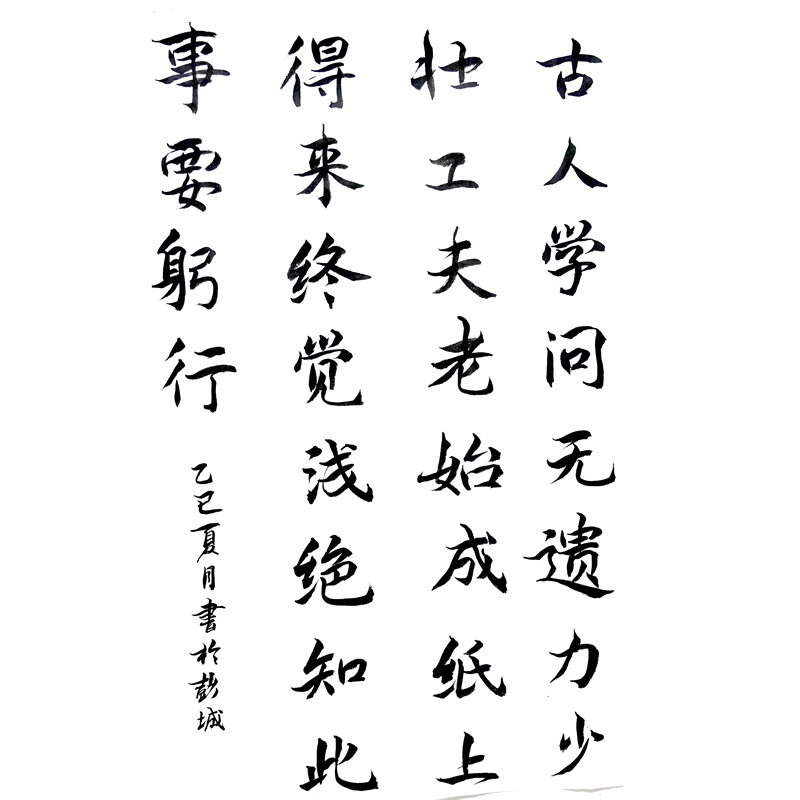 古人学问无遗力少
壮工夫老始成纸上
得来终觉浅绝知此
事要躬行
乙巳夏月書於彭城